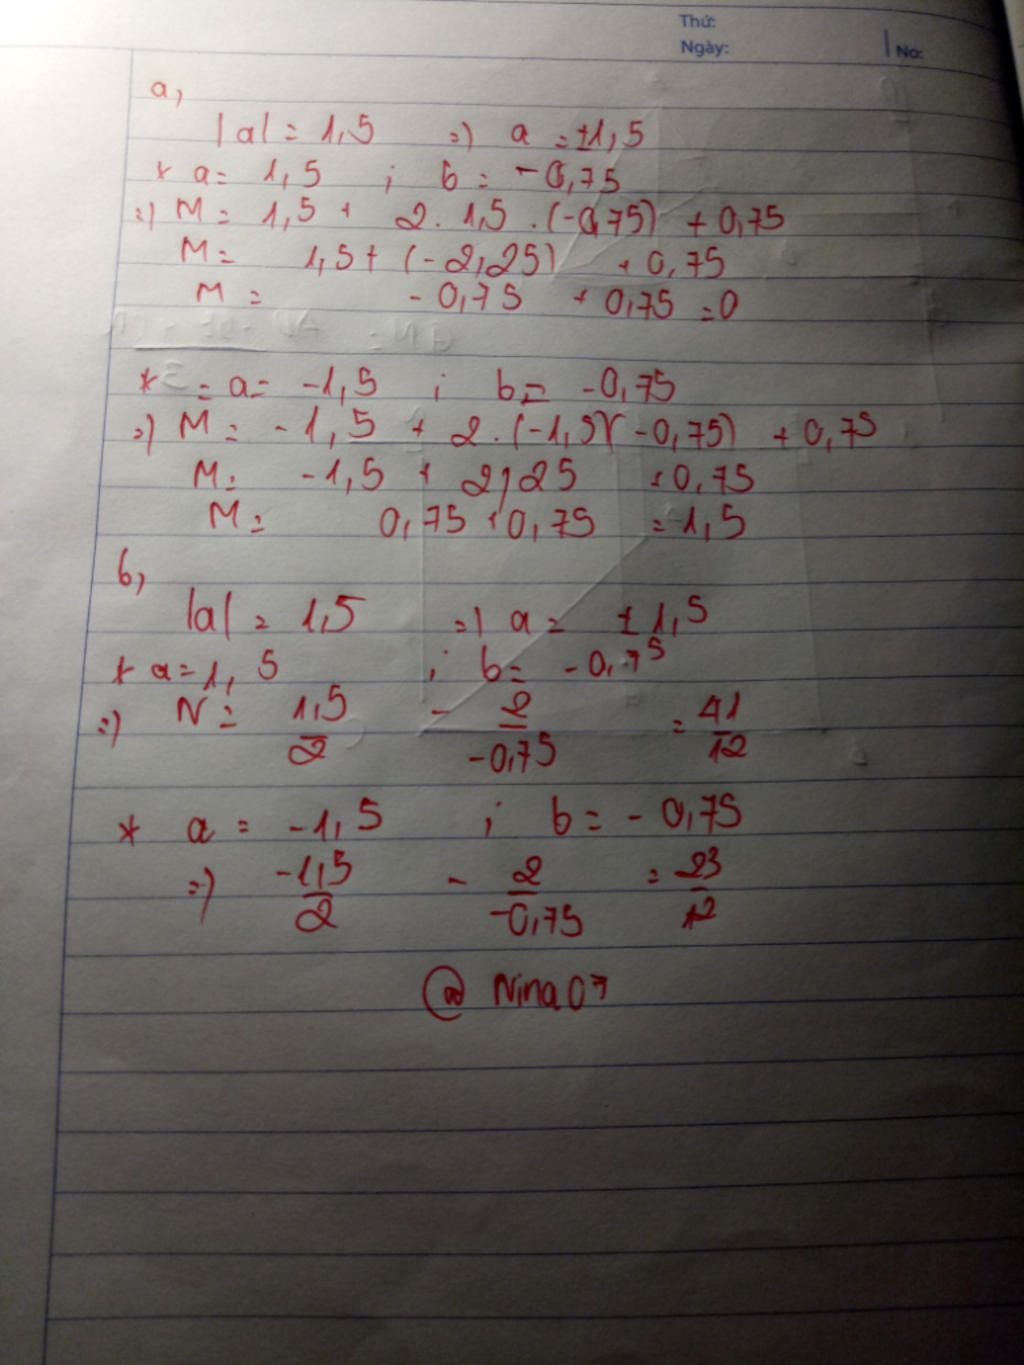 Thứ:
Ngày:
No:
a,
|a| = 1,5 => a = ±1,5
* a = 1,5 ; b = -0,75
=> M = 1,5 + 2 . 1,5 . (-0,75) + 0,75
M = 1,5 + (-2,25) + 0,75
M = -0,75 + 0,75 = 0
* = a = -1,5 ; b = -0,75
=> M = -1,5 + 2 . (-1,5)(-0,75) + 0,75
M = -1,5 + 2,25 + 0,75
M = 0,75 + 0,75 = 1,5
b,
|a| = 1,5 => a = ±1,5
* a = 1,5 ; b = -0,75
=> N = 1,5/2 - 2/-0,75 = 41/12
* a = -1,5 ; b = -0,75
=> -1,5/2 - 2/-0,75 = 23/12
@ Nina07